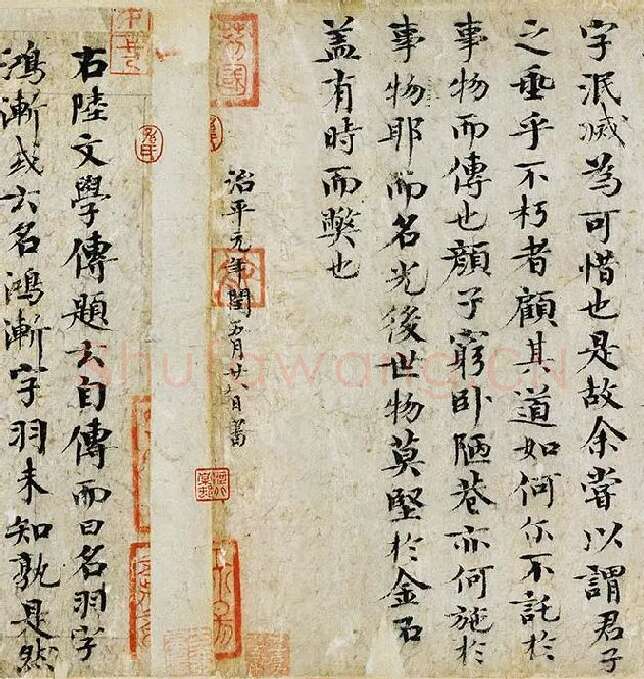 字泯滅為可惜也是故余嘗以謂君子
之垂乎不朽者顧其道如何尔不託於
事物而傳也顔子窮卧陋巷亦何施於
事物耶而名光後世物莫堅於金石
盖有時而弊也
治平元年閏五月廿八日書
右陸文學傳題云自傳而曰名羽字
鴻漸或云名鴻漸字羽未知孰是然
shufawang.CN